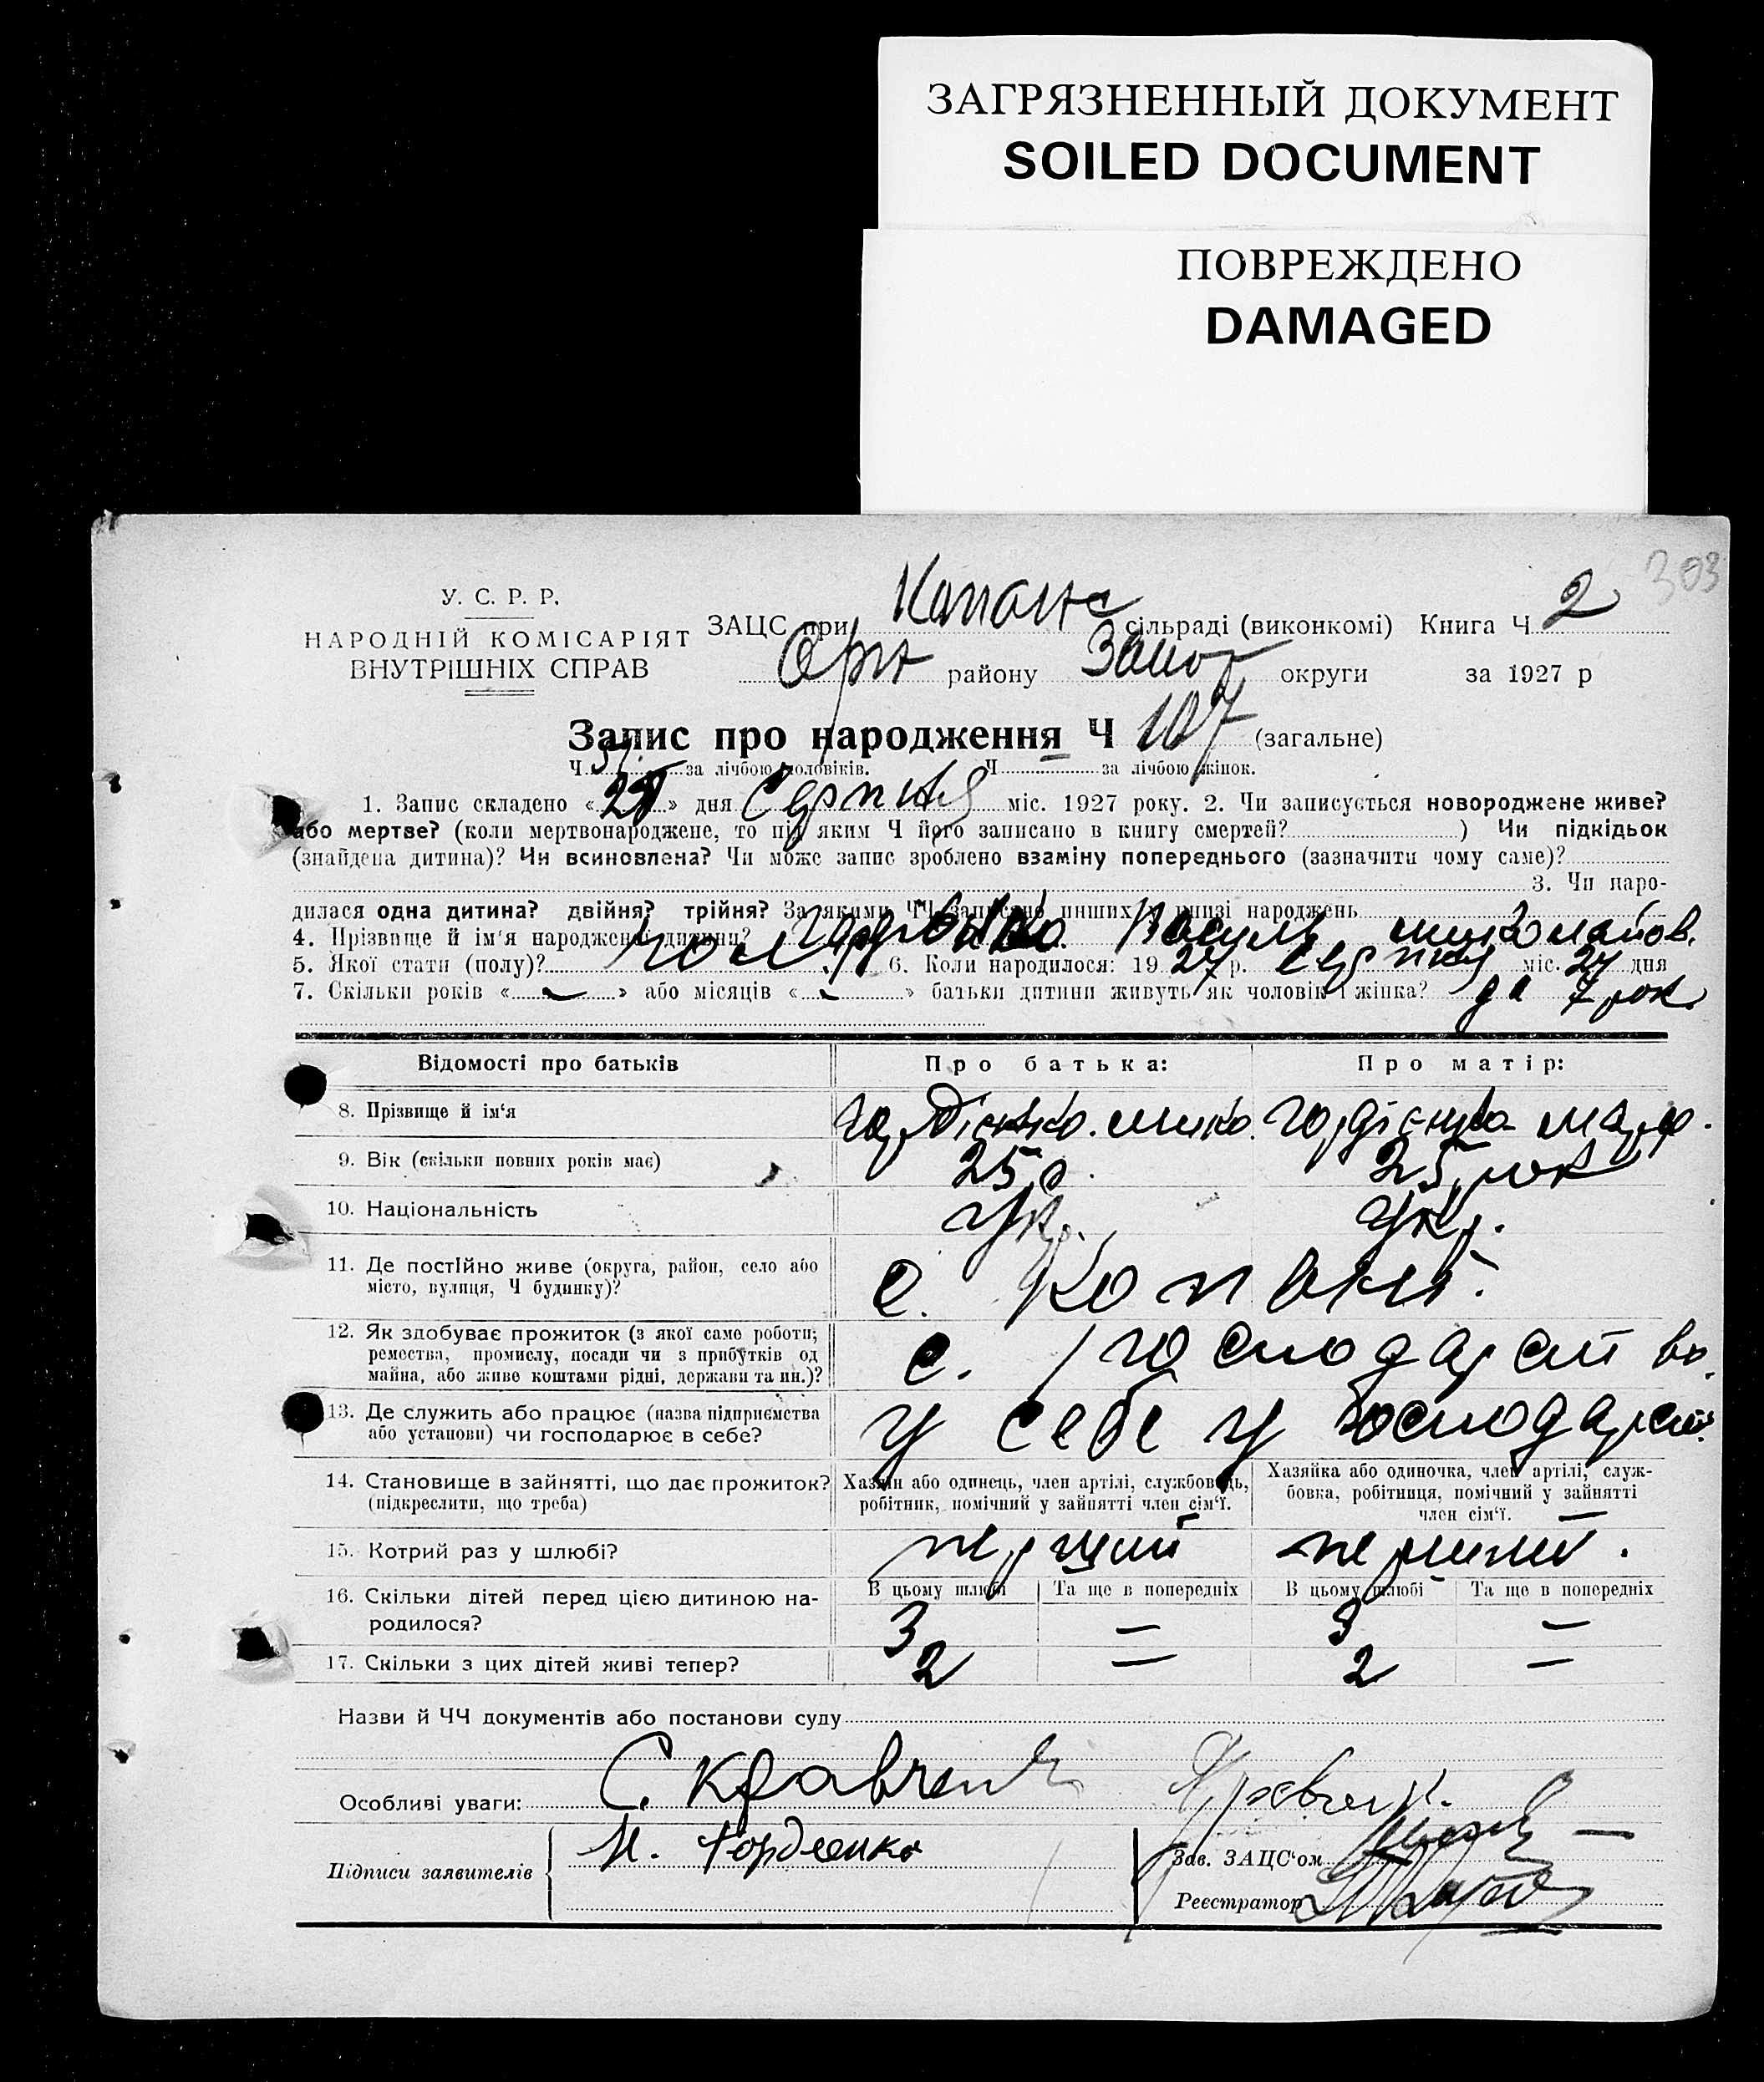 ЗАГРЯЗНЕННЫЙ ДОКУМЕНТ
SOILED DOCUMENT
ПОВРЕЖДЕНО
DAMAGED
303
У. С. Р. Р.
НАРОДНІЙ КОМІСАРІЯТ
ВНУТРІШНІХ СПРАВ
ЗАЦС при Копанс сільраді (виконкомі) Книга Ч 2
Оріх району Запор округи за 1927 р
Запис про народження Ч 107 (загальне)
Ч 51 за лічбою чоловіків. Ч за лічбою жінок.
1. Запис складено « » дня Серпня міс. 1927 року. 2. Чи записується новороджене живе?
або мертве? (коли мертвонароджене, то під яким Ч його записано в книгу смертей? ) Чи підкідьок
(знайдена дитина)? Чи всиновлена? Чи може запис зроблено взаміну попереднього (зазначити чому саме)?
3. Чи наро-
дилася одна дитина? двійня? трійня? За якими ЧЧ записано инших у книзі народжень
4. Прізвище й ім'я народженої дитини? Гордієнко Василь Миколайов.
5. Якої стати (полу)? чол. 6. Коли народилося: 19 27 р. Серпня міс. 27 дня
7. Скільки років « » або місяців « » батьки дитини живуть як чоловік і жінка? 7 рок.
Відомості про батьків Про батька: Про матір:
8. Прізвище й ім'я Гордієнко. Мико. Гордієнко Мар.
9. Вік (скільки повних років має) 25 р. 25 рок
10. Національність Укр. Укр.
11. Де постійно живе (округа, район, село або
місто, вулиця, Ч будинку)? с. Копані.
12. Як здобуває прожиток (з якої само роботи;
ремества, промислу, посади чи з прибутків од
майна, або живе коштами рідні, держави та ин.)? с. господарство.
13. Де служить або працює (назва підприємства
або установи) чи господарює в себе? у себе у господарст.
14. Становище в зайнятті, що дає прожиток?
(підкреслити, що треба)
Хазяїн або одинець, член артілі, службовець,
робітник, помічний у зайнятті член сім'ї.
Хазяйка або одиночка, член артілі, служ-
бовка, робітниця, помічний у зайнятті
член сім'ї.
15. Котрий раз у шлюбі? перший перший.
В цьому шлюбі Та ще в попередніх В цьому шлюбі Та ще в попередніх
16. Скільки дітей перед цією дитиною на-
родилося? 3 — 3 —
17. Скільки з цих дітей живі тепер? 2 — 2 —
Назви й ЧЧ документів або постанови суду
Особливі уваги: С. Кравченк
Підписи заявителів М. Гордієнко
Зав. ЗАЦС'ом
Реєстратор